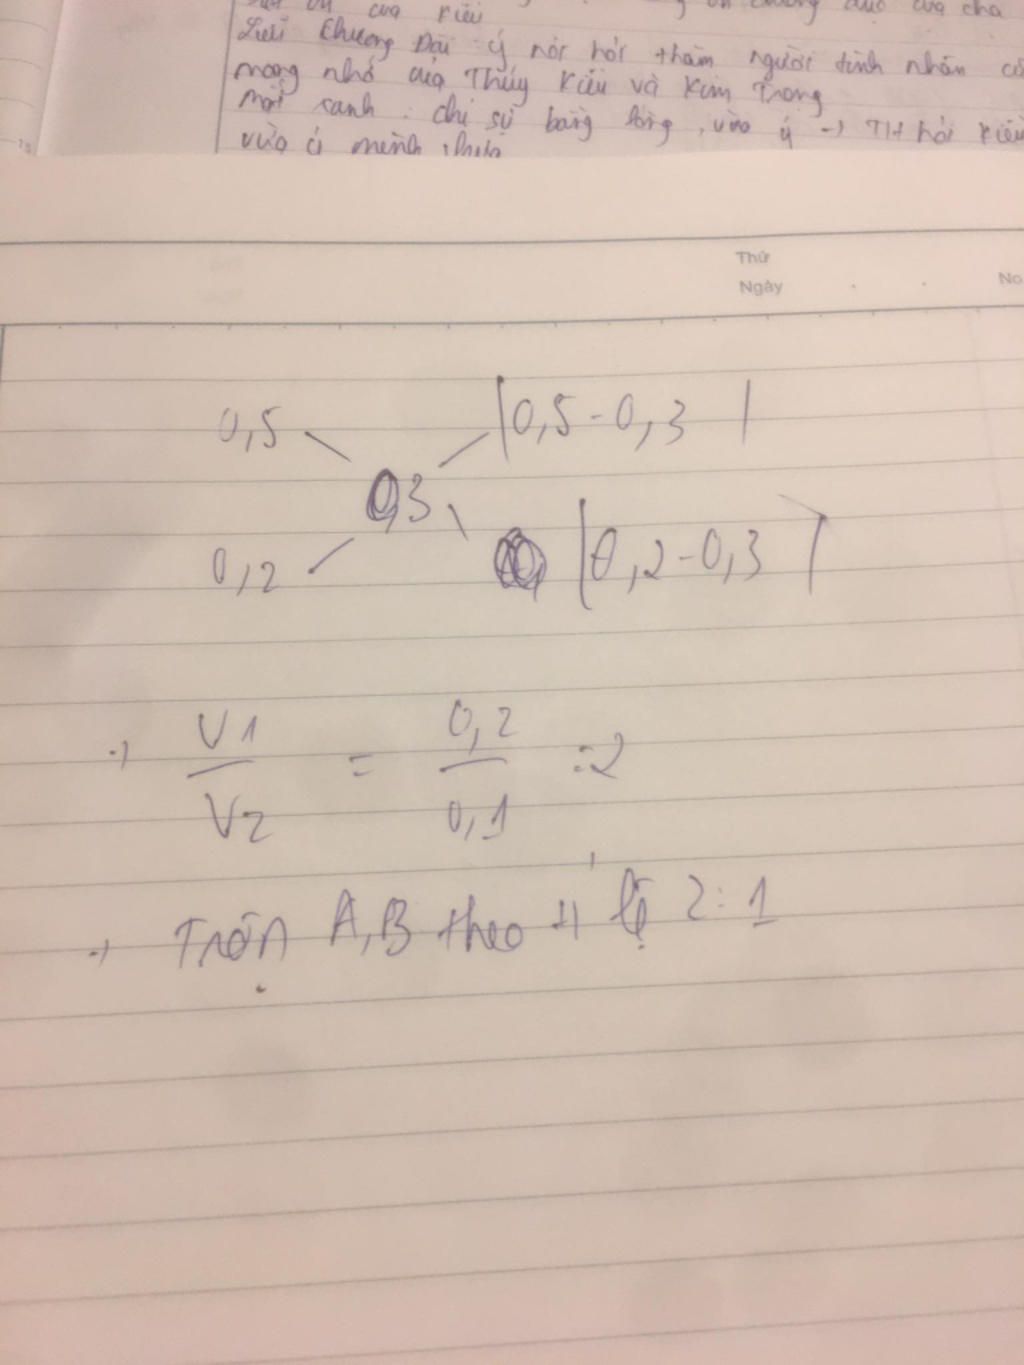 của Kiều
của cha
Liễu Chương Đài ý nói hỏi thăm người tình nhân
mong nhớ của Thúy Kiều và Kim Trọng
mắt xanh : chỉ sự bằng lòng, vừa ý -> TH hỏi Kiều
vừa ý mình chưa
Thứ
Ngày
No
0,5
|0,5-0,3|
0,3
0,2
|0,2-0,3|
-> V1/V2 = 0,2/0,1 = 2
-> Trộn A,B theo tỉ lệ 2:1